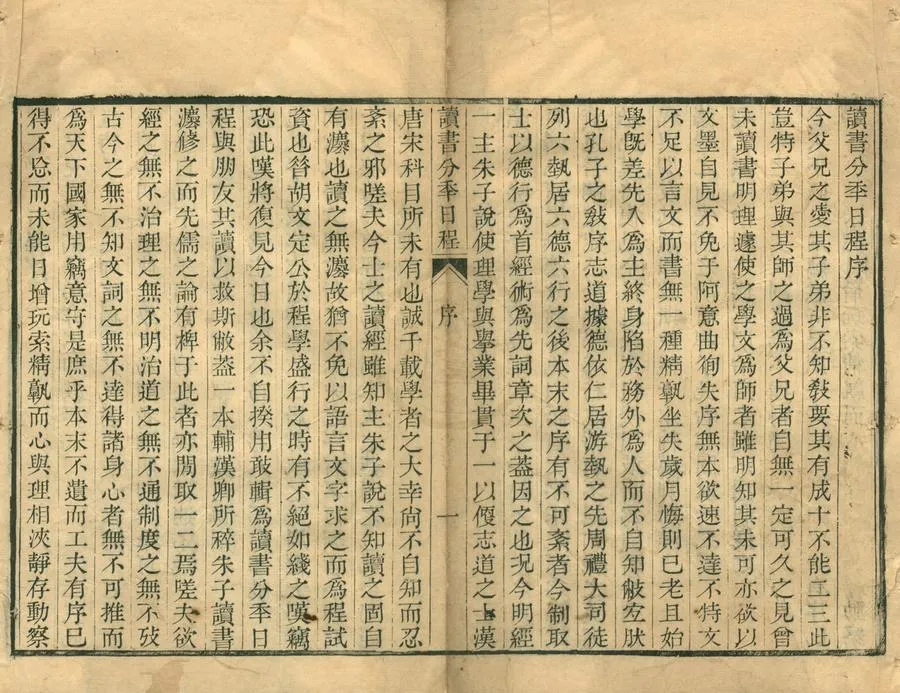 讀書分秊日程序
今父兄之愛其子弟非不知敎要其有成十不能二三此
豈特子弟與其師之過爲父兄者自無一定可久之見曾
未讀書明理遽使之學文爲師者雖明知其未可亦欲以
文墨自見不免于阿意曲徇失序無本欲速不達不特文
不足以言文而書無一種精孰坐失歲月悔則已老且始
學旣差先入爲主終身陷於務外爲人而不自知敝宏肰
也孔子之敍序志道據德依仁居游埶之先周禮大司徒
列六埶居六德六行之後本末之序有不可紊者今制取
士以德行爲首經術爲先詞章次之葢因之也况今明經
一主朱子說使理學與舉業畢貫于一以優志道之士漢
讀書分秊日程
序
一
唐宋科目所未有也誠千載學者之大幸尙不自知而忍
紊之邪嗟夫今士之讀經雖知主朱子說不知讀之固自
有灋也讀之無灋故猶不免以語言文字求之而爲程試
資也昝胡文定公於程學盛行之時有不絕如綫之嘆竊
恐此嘆將復見今日也余不自揆用敢輯爲讀書分秊日
程與朋友共讀以救斯敝葢一本輔漢卿所稡朱子讀書
灋修之而先儒之論有裨于此者亦閒取一二焉嗟夫欲
經之無不治理之無不明治道之無不通制度之無不攷
古今之無不知文詞之無不達得諸身心者無不可推而
爲天下國家用竊意守是庶乎本末不遺而工夫有序已
得不忘而未能日增玩索精孰而心與理相浹靜存動察